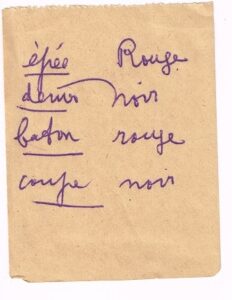 épée Rouge
denier noir
baton rouge
coupe noir